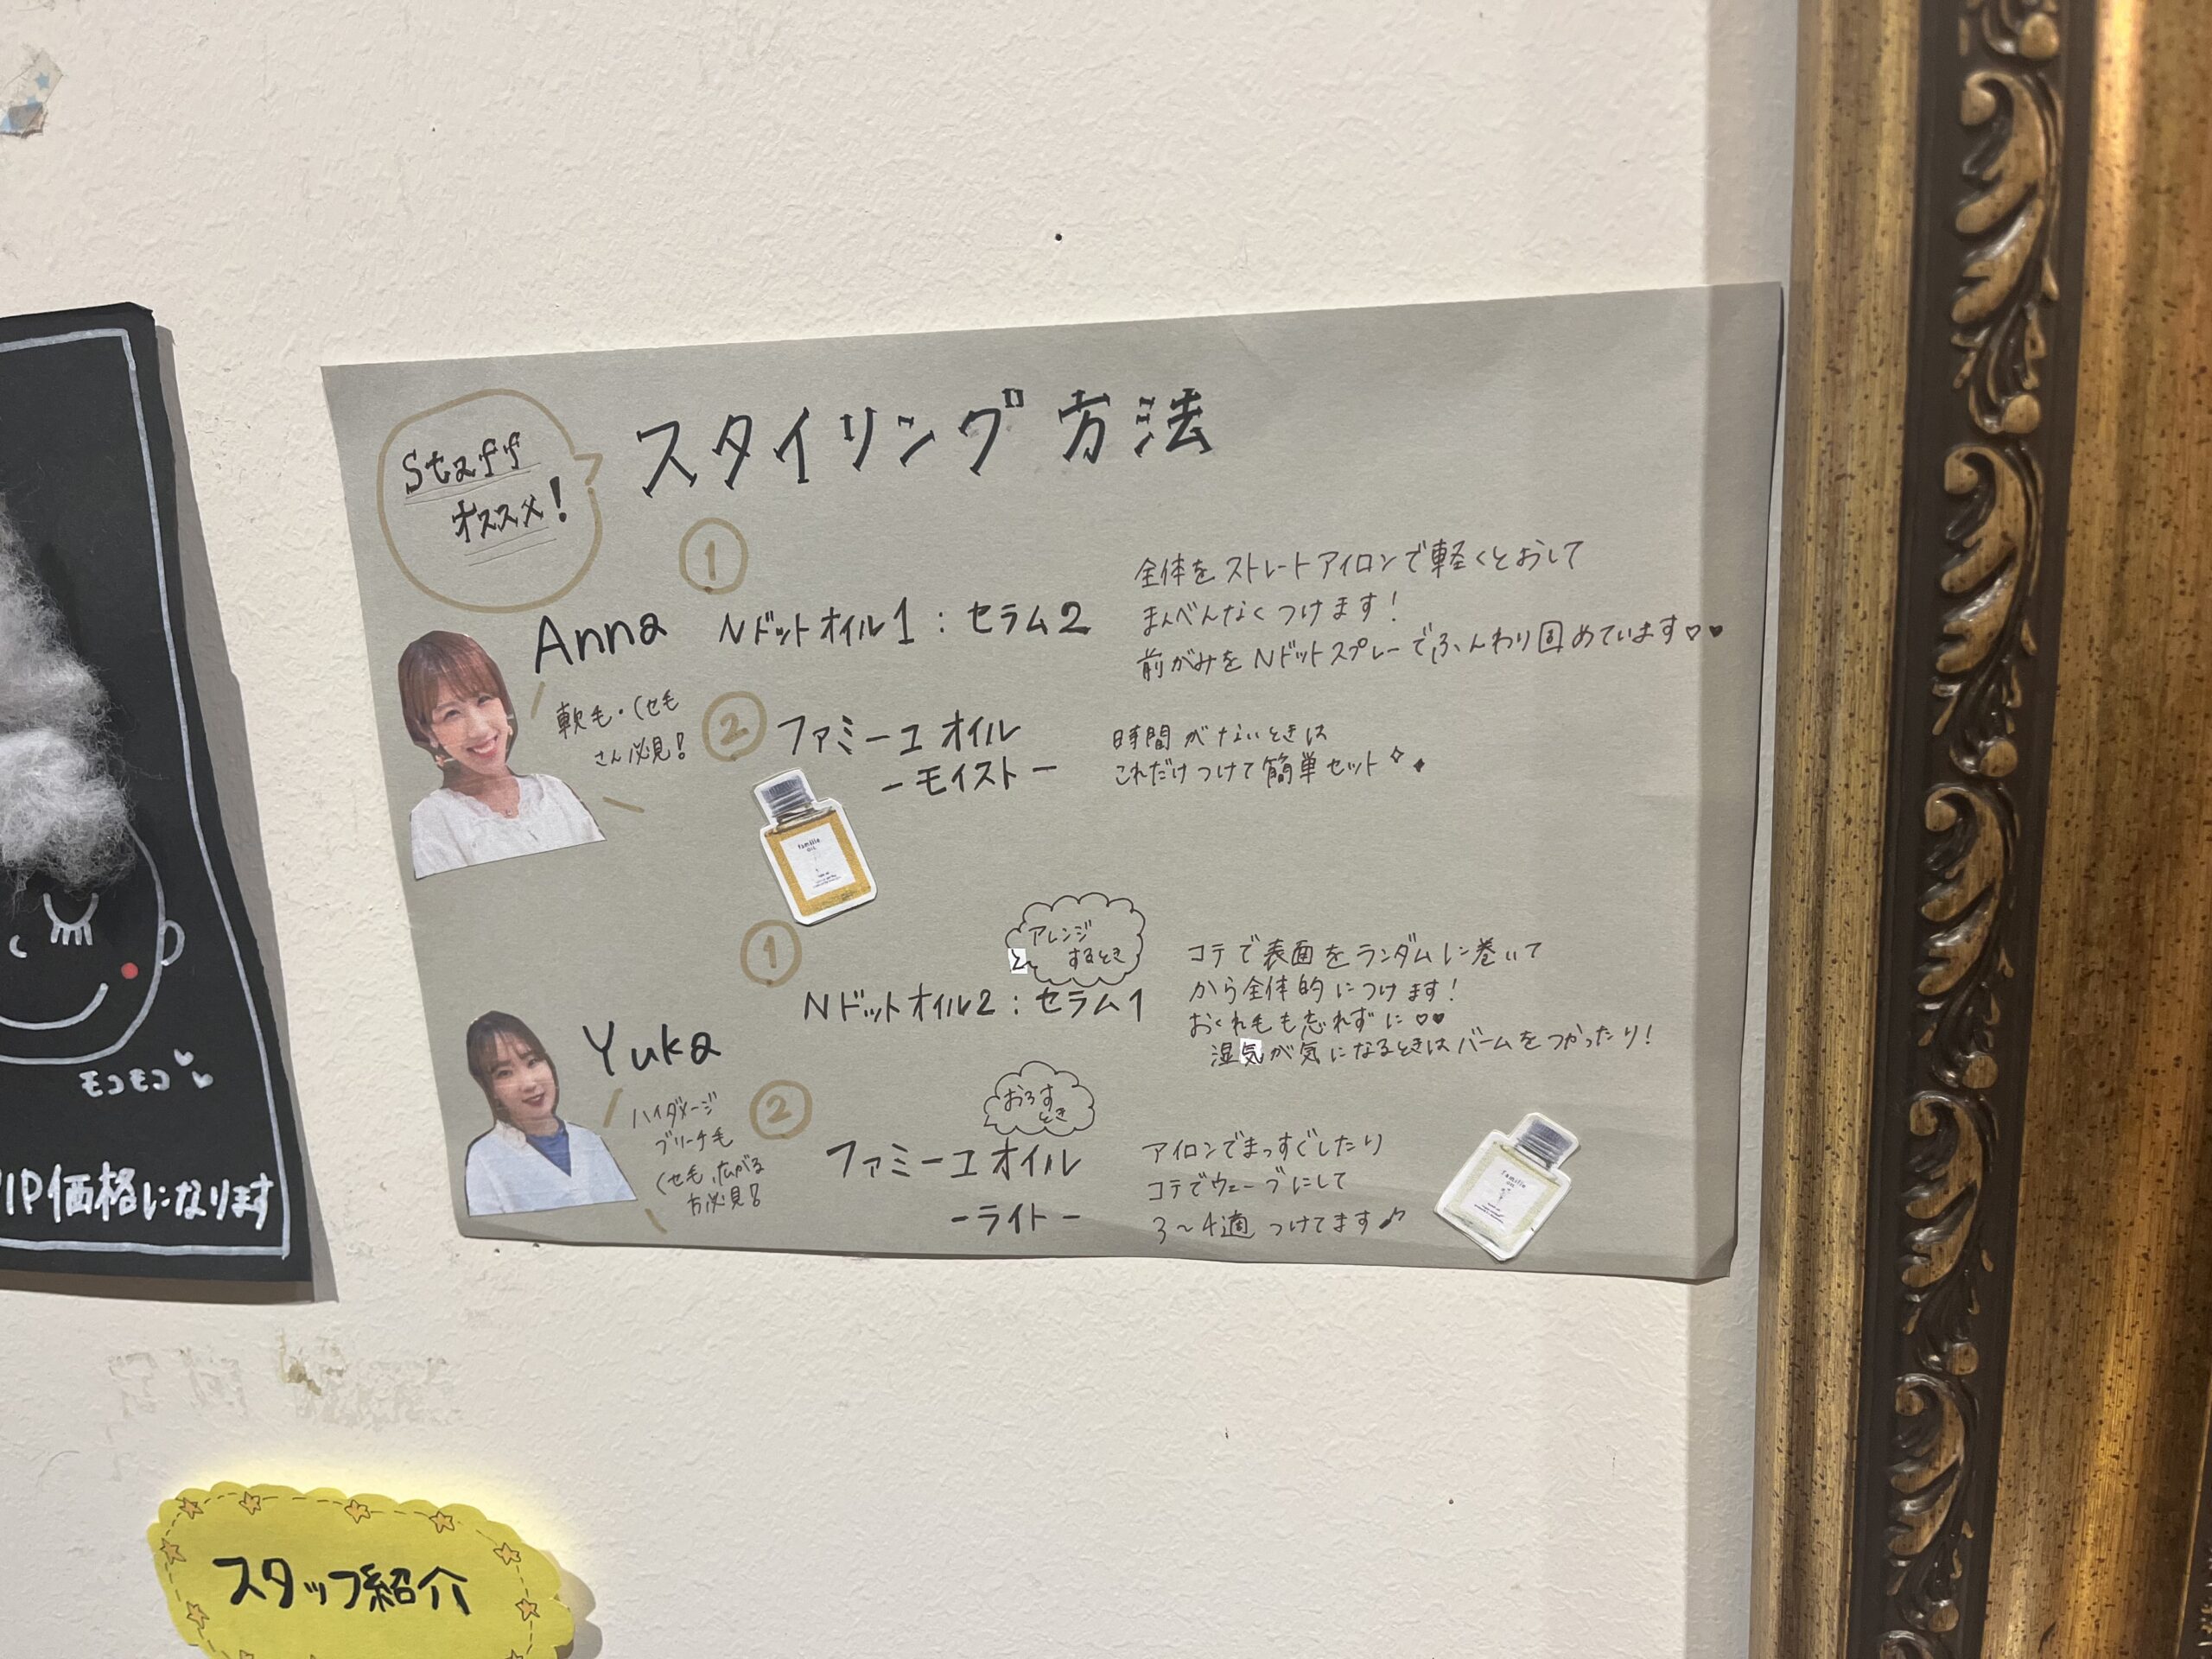 Staff
オススメ!
スタイリング方法
①
Anna
軟毛・くせも
さん必見!
Nドットオイル1:セラム2
全体をストレートアイロンで軽くとおして
まんべんなくつけます!
前がみをNドットスプレーでふんわり固めています♡♥
②
ファミーユオイル
-モイスト-
時間がないときは
これだけつけて簡単セット
famille
OIL
①
アレンジ
するとき
Nドットオイル2:セラム1
コテで表面をランダムに巻いて
から全体的につけます!
おくれ毛も忘れずに♡♥
湿気が気になるときはバームをつかったり!
Yuka
ハイダメージ
ブリーチ毛
くせ毛、広がる
方必見!
②
おろす
とき
ファミーユオイル
-ライト-
アイロンでまっすぐしたり
コテでウェーブにして
3〜4適つけてます♪
famille
OIL
モコモコ
VIP価格になります
スタッフ紹介